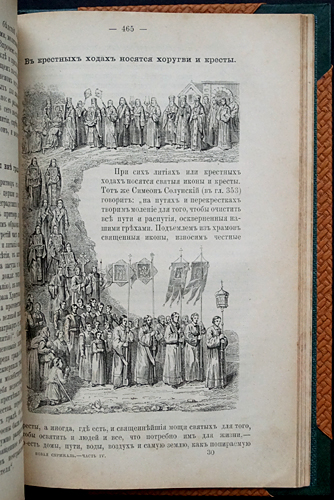 — 465 —
Въ крестныхъ ходахъ носятся хоругви и кресты.
При сихъ литіяхъ или крестныхъ
ходахъ носятся святыя иконы и кресты.
Тотъ же Симеонъ Солунскій (въ гл. 353)
говоритъ: „на путяхъ и перекресткахъ
творимъ моленіе для того, чтобы очистить
всѣ пути и распутія, оскверненныя на-
шими грѣхами. Подъемлемъ изъ храмовъ
священныя иконы, износимъ честные
кресты, а иногда, гдѣ есть, и священнѣйшія мощи святыхъ для того,
чтобы освятить и людей и все, что потребно имъ для жизни,—
есть домы, пути, воды, воздухъ и самую землю, какъ попираемую
НОВАЯ СКРИЖАЛЬ.—ЧАСТЬ IV.
30